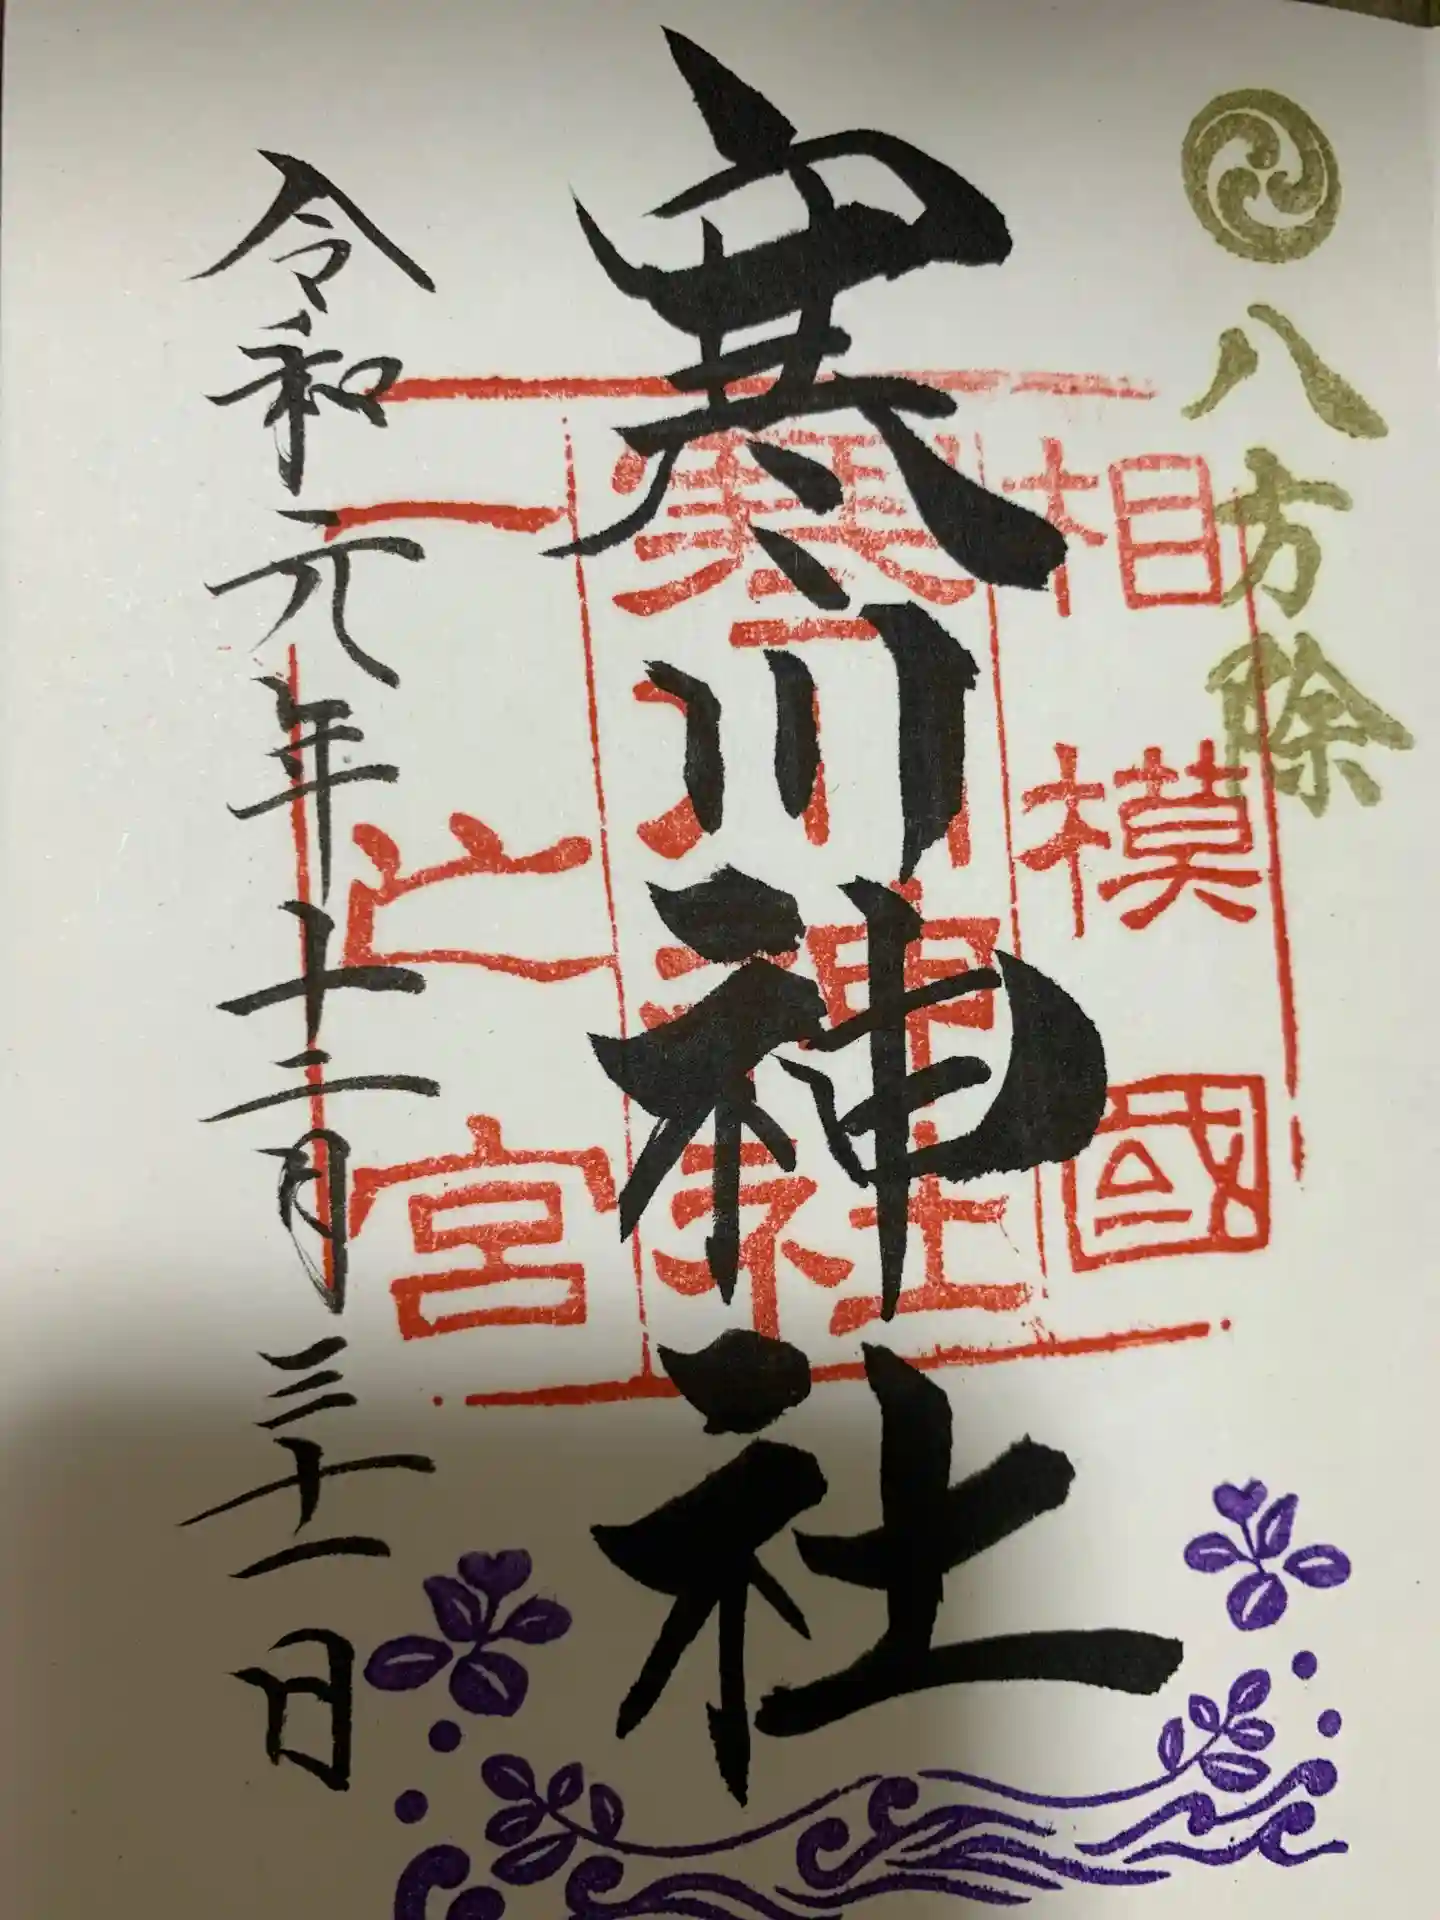 八方除
相模國
寒川神社
一之宮
寒川神社
令和元年十二月三十一日